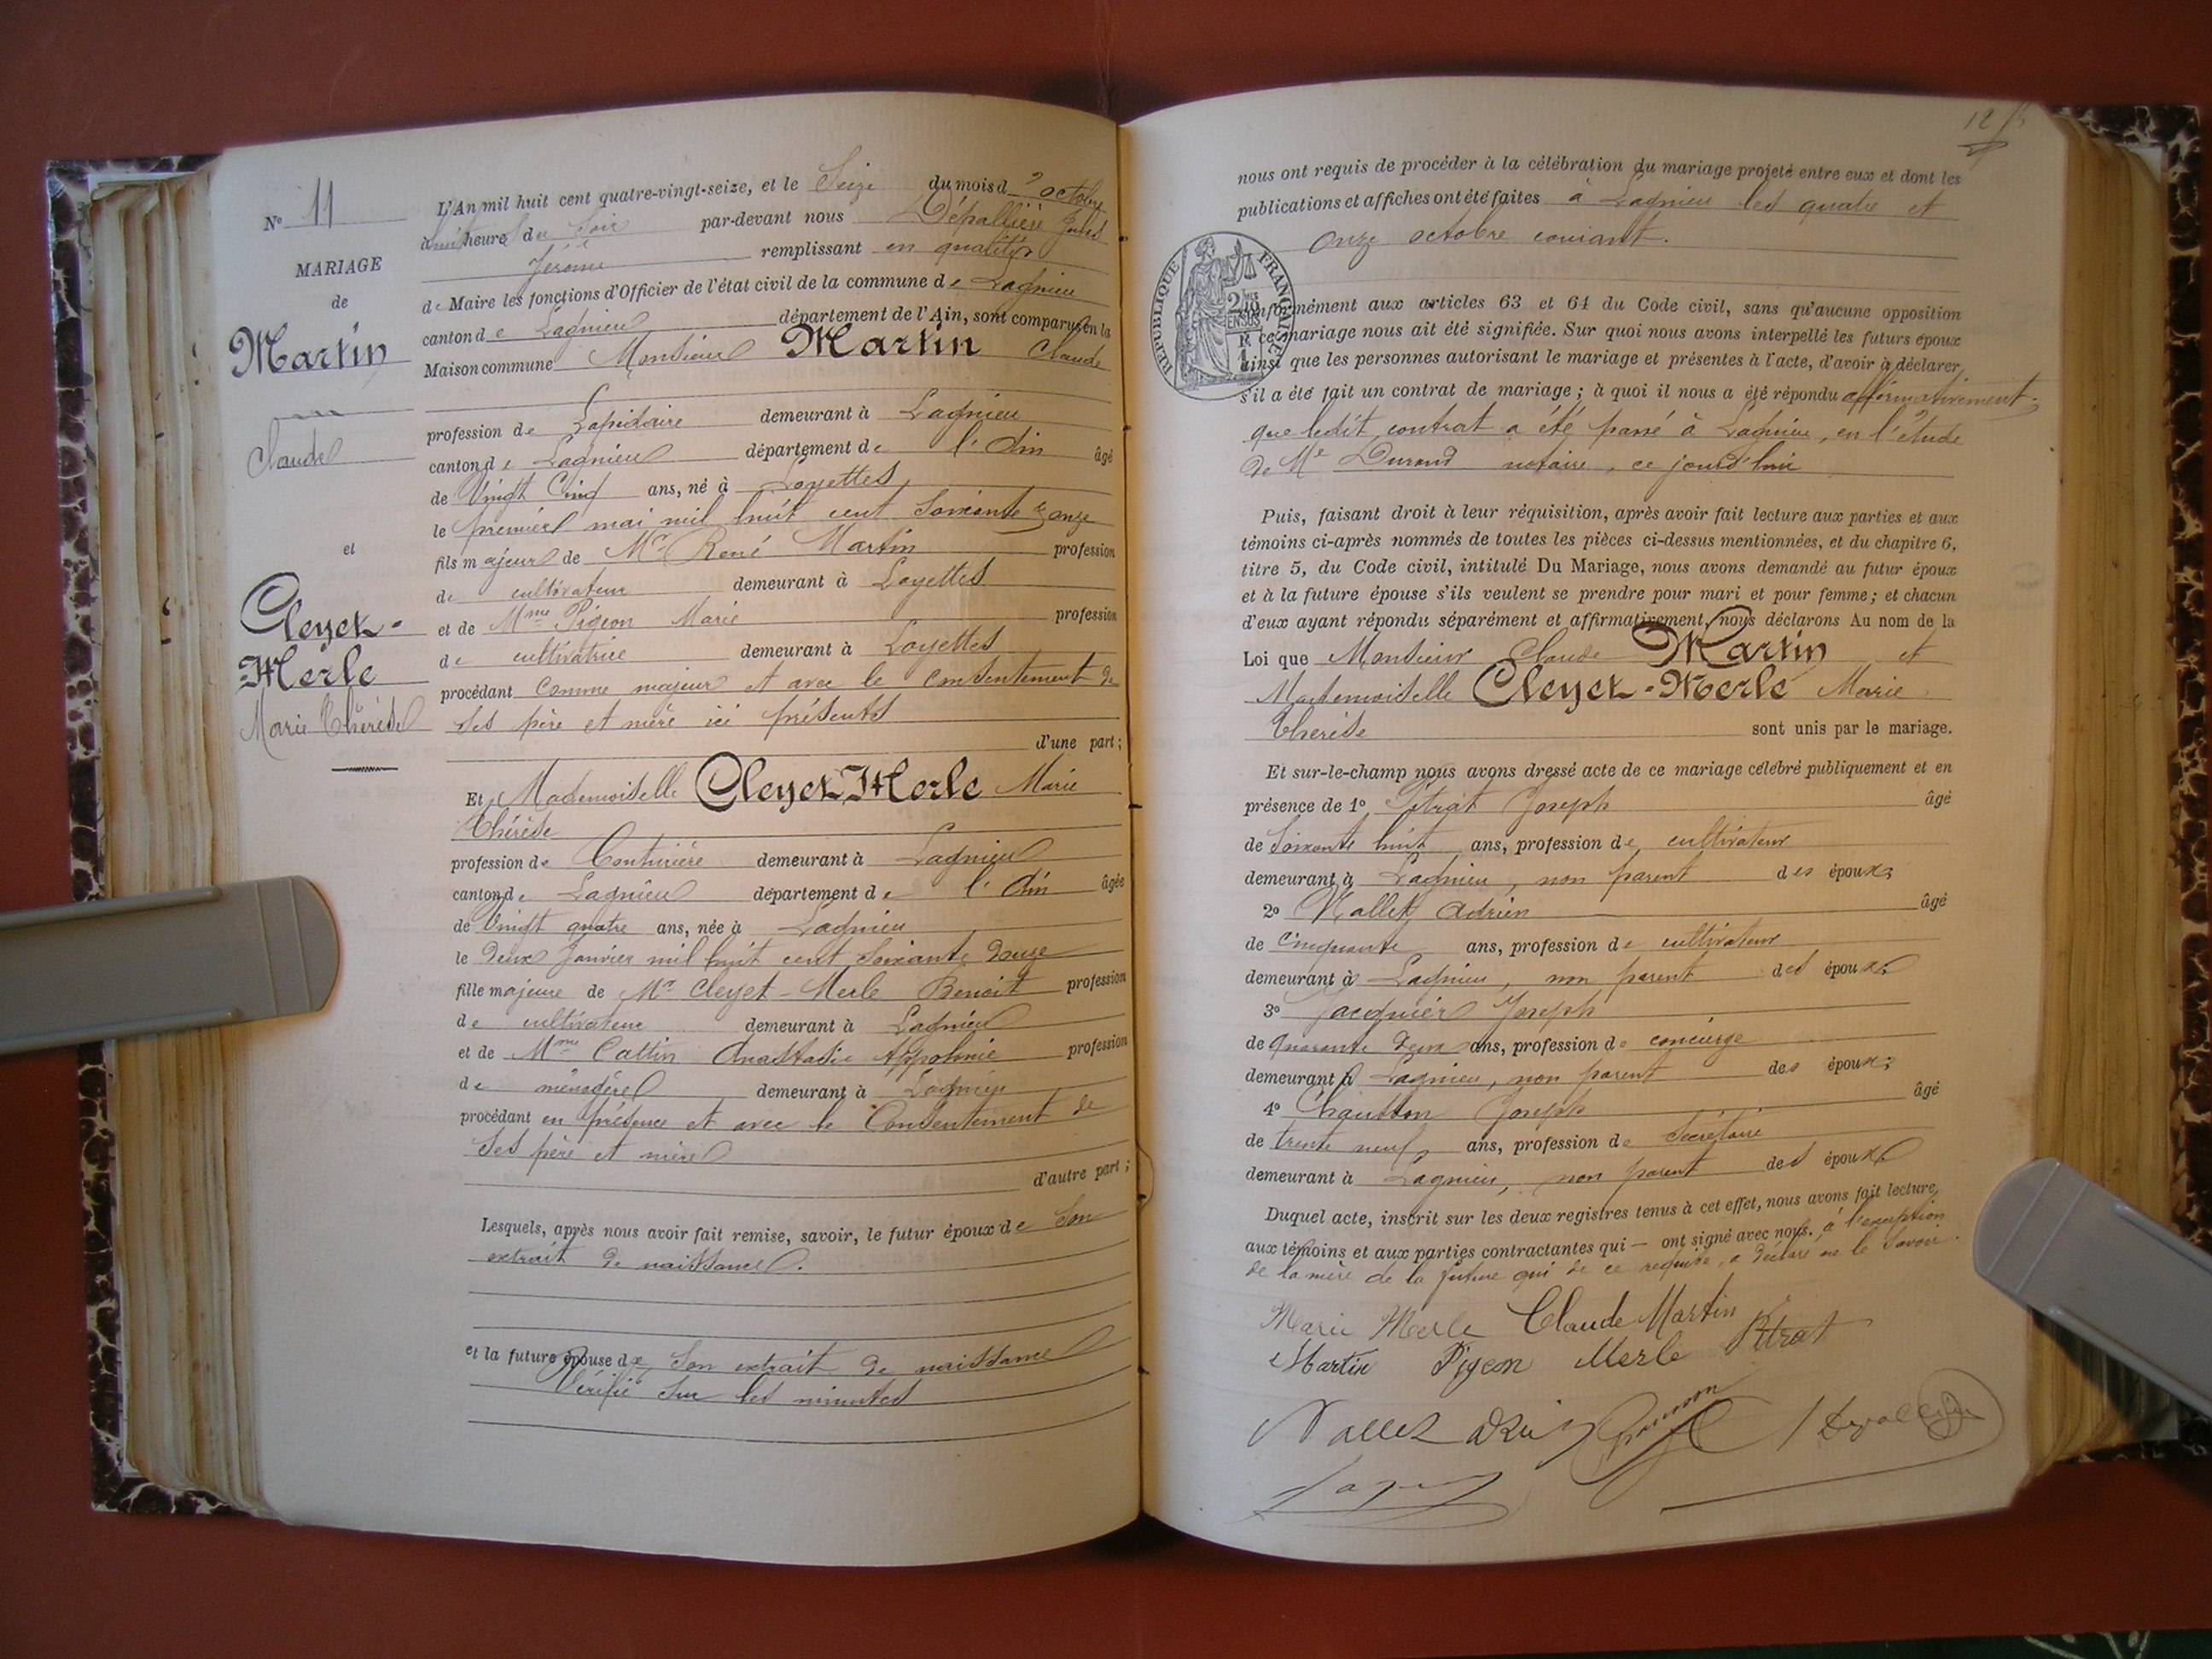 N° 11
MARIAGE
de
Martin
Claude
et
Cleyet-
Merle
Marie Thérèse
L'An mil huit cent quatre-vingt-seize, et le Seize du mois d'octobre
à huit heures du Soir par-devant nous Dépallière Jules
Jérôme remplissant en qualité
de Maire les fonctions d'Officier de l'état civil de la commune de Lagnieu
canton de Lagnieu département de l'Ain, sont comparus en la
Maison commune Monsieur Martin Claude
profession de Lapidaire demeurant à Lagnieu
canton de Lagnieu département de l'Ain âgé
de Vingt Cinq ans, né à Loyettes
le premier mai mil huit cent soixante & onze
fils majeur de Mr René Martin profession
de cultivateur demeurant à Loyettes
et de Mme Pigeon Marie profession
de cultivatrice demeurant à Loyettes
procédant comme majeur et avec le consentement de
ses père et mère ici présents
d'une part;
Et Mademoiselle Cleyet Merle Marie
Thérèse
profession de Couturière demeurant à Lagnieu
canton de Lagnieu département de l'Ain âgée
de vingt quatre ans, née à Lagnieu
le deux Janvier mil huit cent soixante douze
fille majeure de Mr Cleyet-Merle Benoit profession
de cultivateur demeurant à Lagnieu
et de Mme Cattin Anastasie Appolonie profession
de ménagère demeurant à Lagnieu
procédant en présence et avec le Consentement de
ses père et mère
d'autre part;
Lesquels, après nous avoir fait remise, savoir, le futur époux de son
extrait de naissance.
et la future épouse de son extrait de naissance
Vérifié sur les minutes
12
nous ont requis de procéder à la célébration du mariage projeté entre eux et dont les
publications et affiches ont été faites à Lagnieu les quatre et
onze octobre courant.
RÉPUBLIQUE FRANÇAISE
conformément aux articles 63 et 64 du Code civil, sans qu'aucune opposition
à ce mariage nous ait été signifiée. Sur quoi nous avons interpellé les futurs époux
ainsi que les personnes autorisant le mariage et présentes à l'acte, d'avoir à déclarer
s'il a été fait un contrat de mariage; à quoi il nous a été répondu affirmativement
que ledit contrat a été passé à Lagnieu, en l'étude
de Me Durand notaire, ce jourd'hui
Puis, faisant droit à leur réquisition, après avoir fait lecture aux parties et aux
témoins ci-après nommés de toutes les pièces ci-dessus mentionnées, et du chapitre 6,
titre 5, du Code civil, intitulé Du Mariage, nous avons demandé au futur époux
et à la future épouse s'ils veulent se prendre pour mari et pour femme; et chacun
d'eux ayant répondu séparément et affirmativement, nous déclarons Au nom de la
Loi que Monsieur Claude Martin et
Mademoiselle Cleyet-Merle Marie
Thérèse sont unis par le mariage.
Et sur-le-champ nous avons dressé acte de ce mariage célébré publiquement et en
présence de 1° Pitrat Joseph âgé
de soixante huit ans, profession de cultivateur
demeurant à Lagnieu, non parent des époux;
2° Vallet Adrien âgé
de cinquante ans, profession de cultivateur
demeurant à Lagnieu, non parent des époux;
3° Jacquier Joseph
de quarante deux ans, profession de concierge
demeurant à Lagnieu, non parent des époux;
4° Joseph âgé
de trente neuf ans, profession de Secrétaire
demeurant à Lagnieu, non parent des époux
Duquel acte, inscrit sur les deux registres tenus à cet effet, nous avons fait lecture
aux témoins et aux parties contractantes qui — ont signé avec nous. à l'exception
de la mère de la future qui de ce requise, a déclaré ne le savoir.
Marie Merle Claude Martin
Martin Pigeon Merle Pitrat